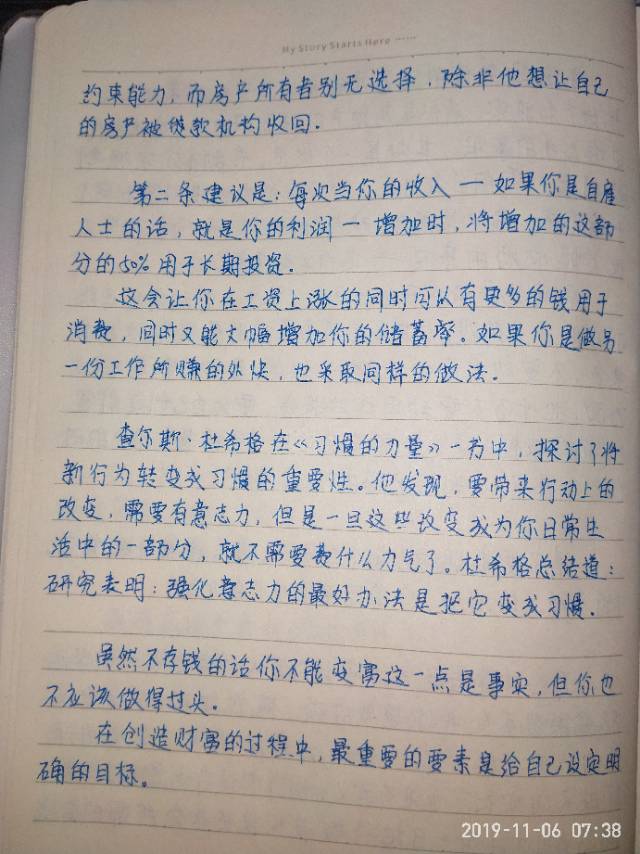 My Story Starts Here ......
约束能力，而房产所有者别无选择，除非他想让自己
的房产被贷款机构收回．
第二条建议是：每次当你的收入 — 如果你是自雇
人士的话，就是你的利润 — 增加时，将增加的这部
分的50%用于长期投资．
这会让你在工资上涨的同时可以有更多的钱用于
消费，同时又能大幅增加你的储蓄率。如果你是做另
一份工作所赚的外快，也采取同样的做法．
查尔斯·杜希格在《习惯的力量》一书中，探讨了将
新行为转变成习惯的重要性。他发现，要带来行动上的
改变，需要有意志力，但是一旦这些改变成为你日常生
活中的一部分，就不需要费什么力气了。杜希格总结道：
研究表明：强化意志力的最好办法是把它变成习惯．
虽然不存钱的话你不能变富这一点是事实，但你也
不应该做得过头。
在创造财富的过程中，最重要的要素是给自己设定明
确的目标。
2019-11-06 07:38